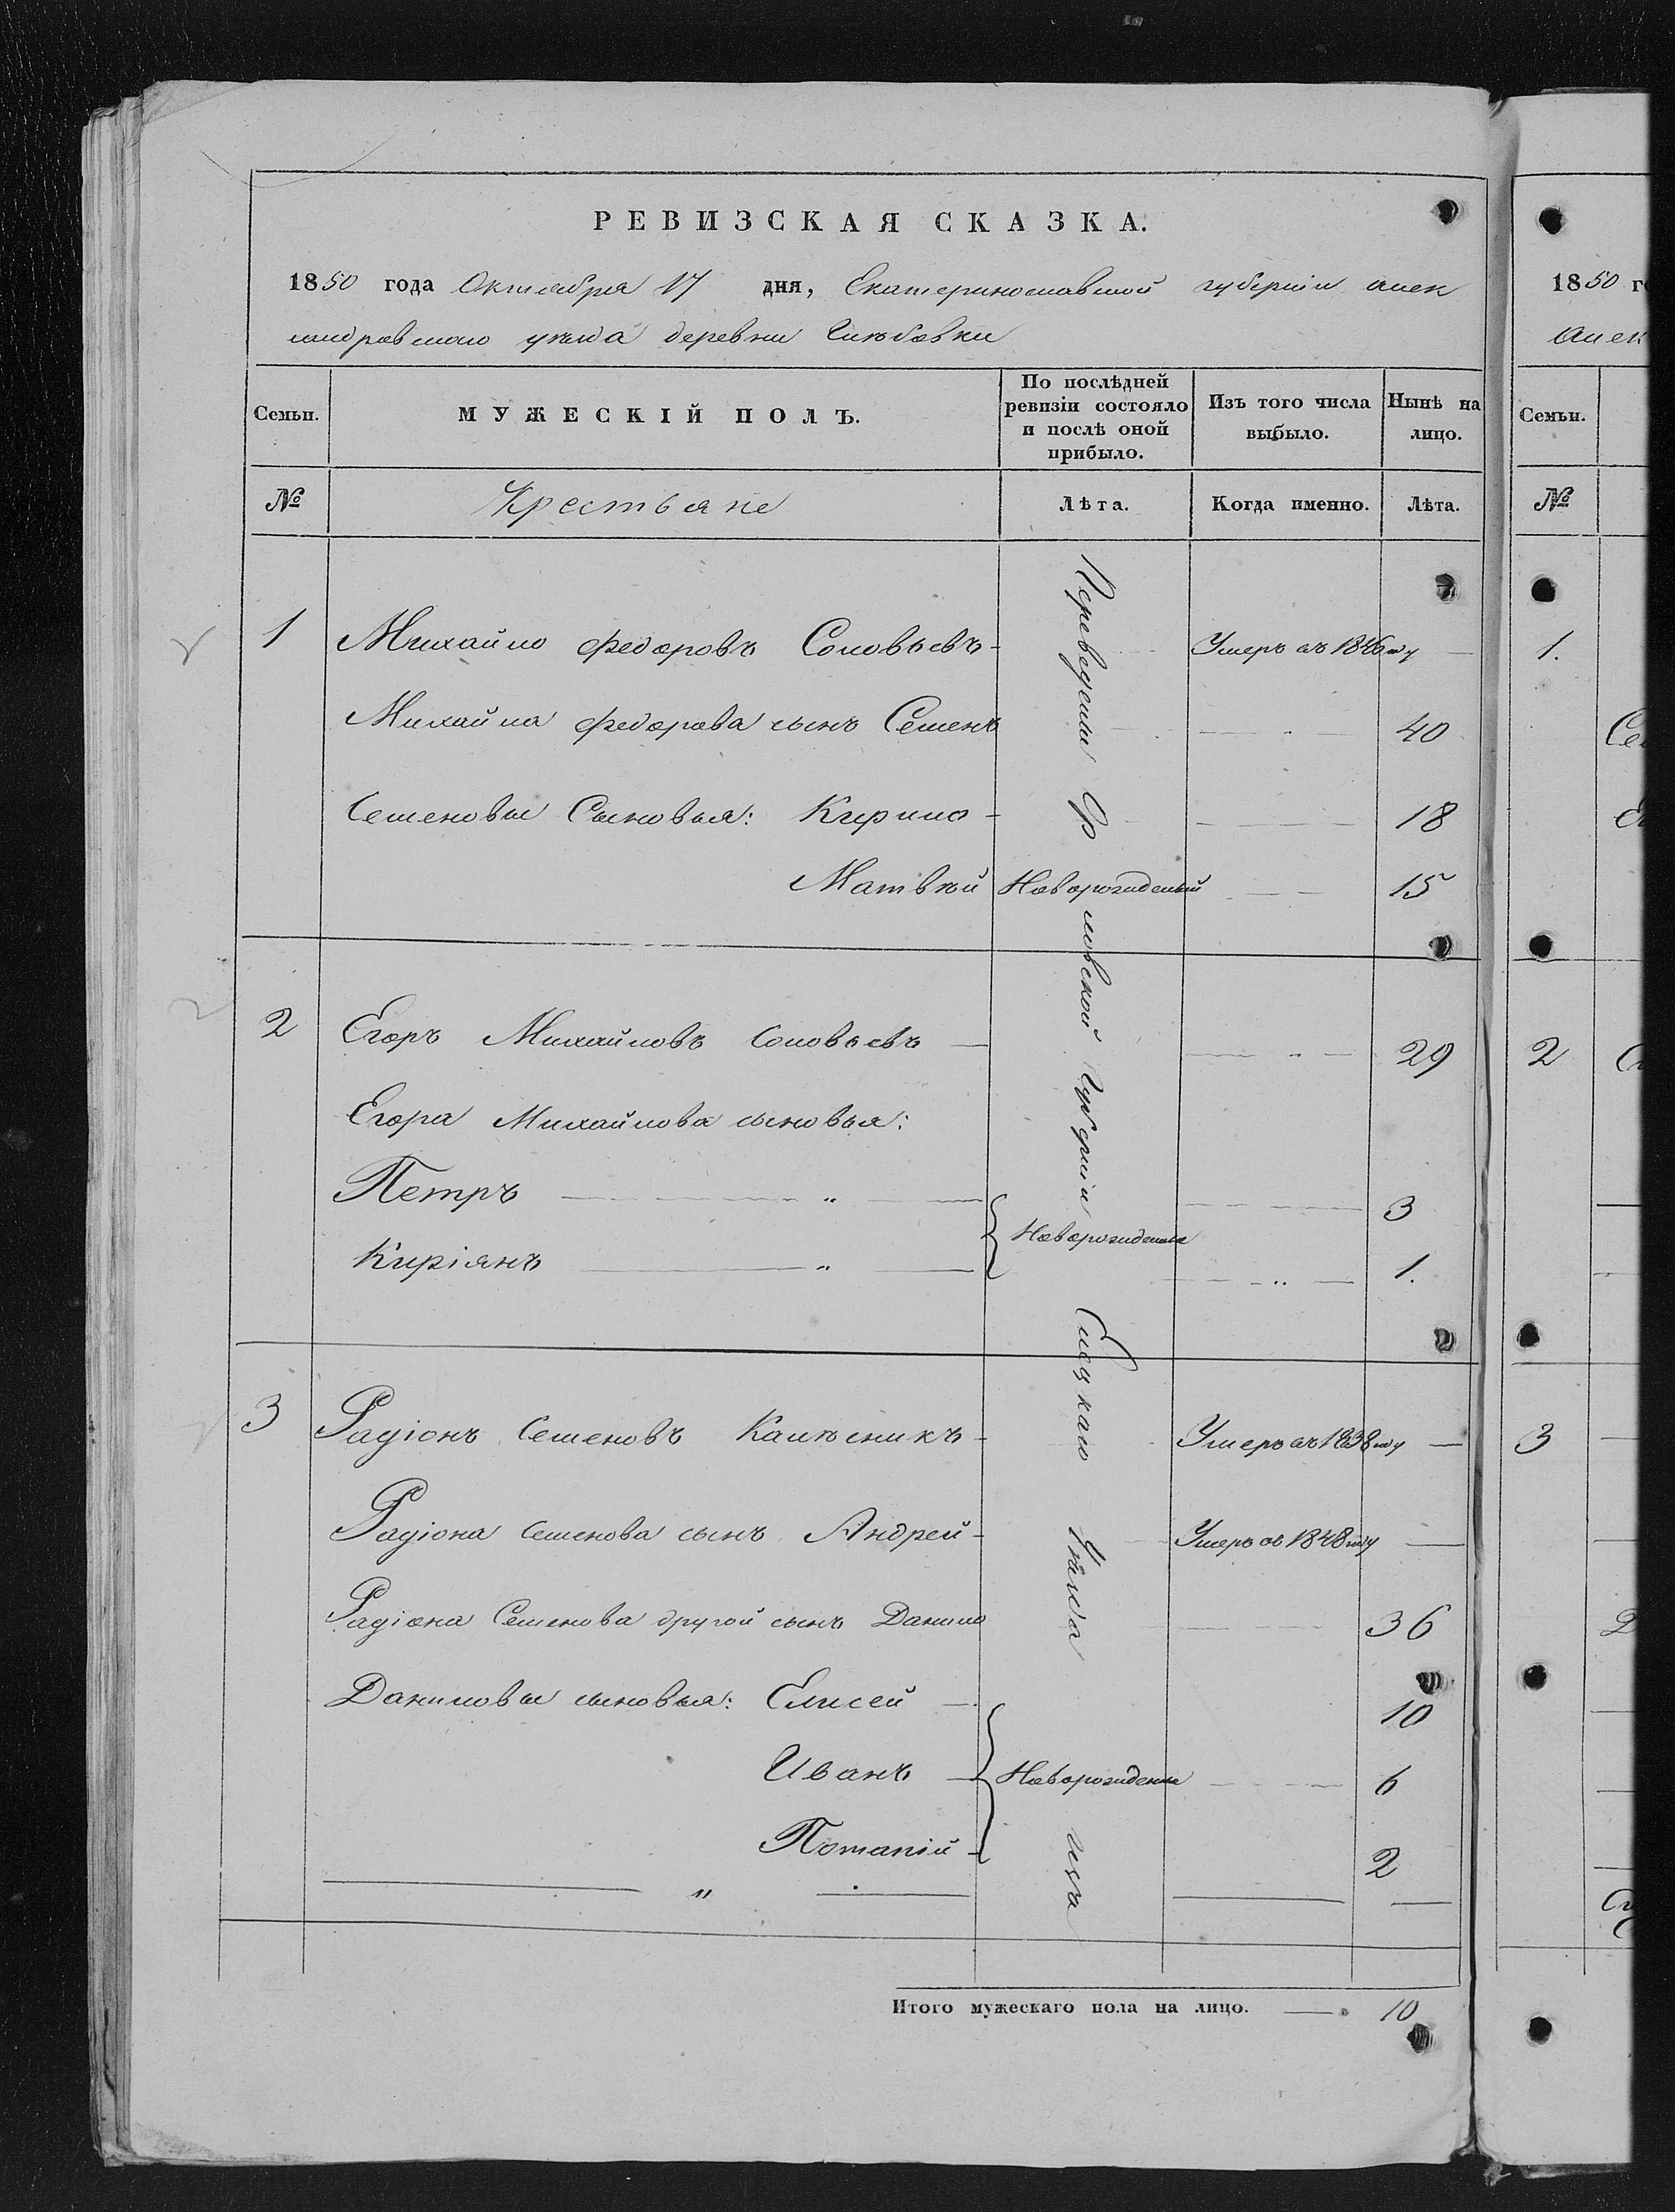 РЕВИЗСКАЯ СКАЗКА.
1850 года Октября 17 дня, Екатеринославской губерніи алек
сандровскаго уѣзда деревни
Семьи. МУЖЕСКІЙ ПОЛЪ. По послѣдней ревизіи состояло и послѣ оной прибыло. Изъ того числа выбыло. Нынѣ на лицо.
№ Крестьяне Лѣта. Когда именно. Лѣта.
1 Михайло Федоровъ Соловьевъ - Умеръ въ 1846 году —
Михайла Федорова сынъ Семенъ 40
Семеновы Сыновья: Кирило - 18
Матвѣй Новорожденый 15
2 Егоръ Михайловъ Соловьевъ — 29
Егора Михайлова сыновья:
Петръ — " — 3
Новорожденые
Киріянъ — " — 1.
3 Радіонъ Семеновъ Калѣсникъ - Умеръ въ 1838 году —
Радіона Семенова сынъ Андрей - Умеръ въ 1848 году —
Радіона Семенова другой сынъ Данило 36
Даниловы сыновья: Елисей — 10
Иванъ — Новорожденые 6
Потапій - 2
— " —
Переведены Орловской Губерніи Елецкаго Уѣзда
Итого мужескаго пола на лицо. — 10
1850 г
Алек
Семьи.
№
1.
Се
2
3